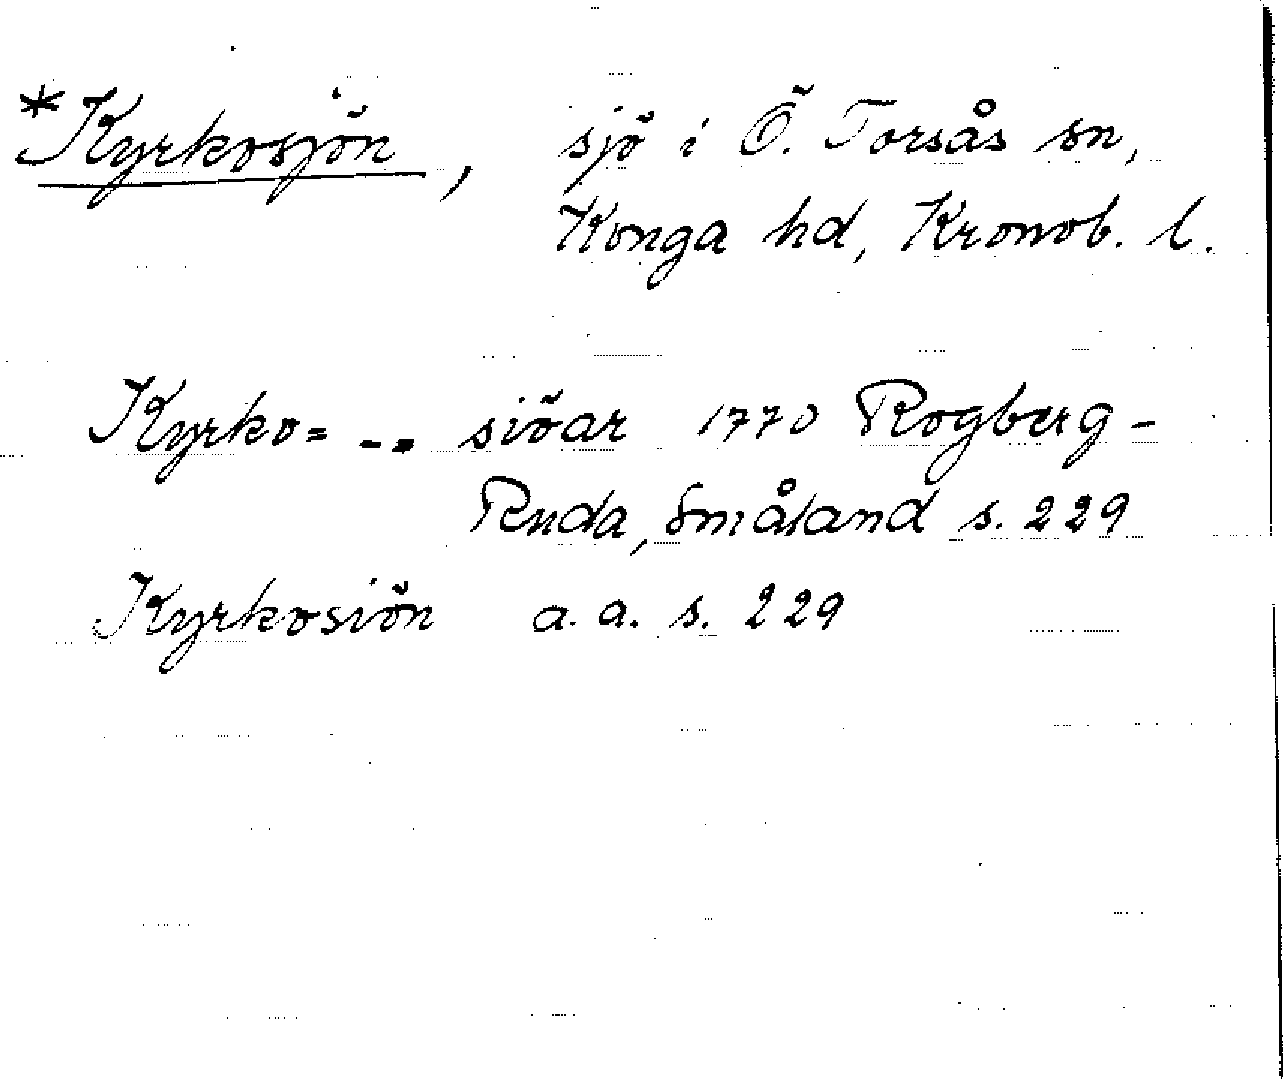 *Kyrkosjön, sjö i Ö. Torsås sn,
Konga hd, Kronob. l.
Kyrko= -- siöar 1770 Rogberg-
Ruda, Småland s. 229
Kyrkosiön a. a. s. 229